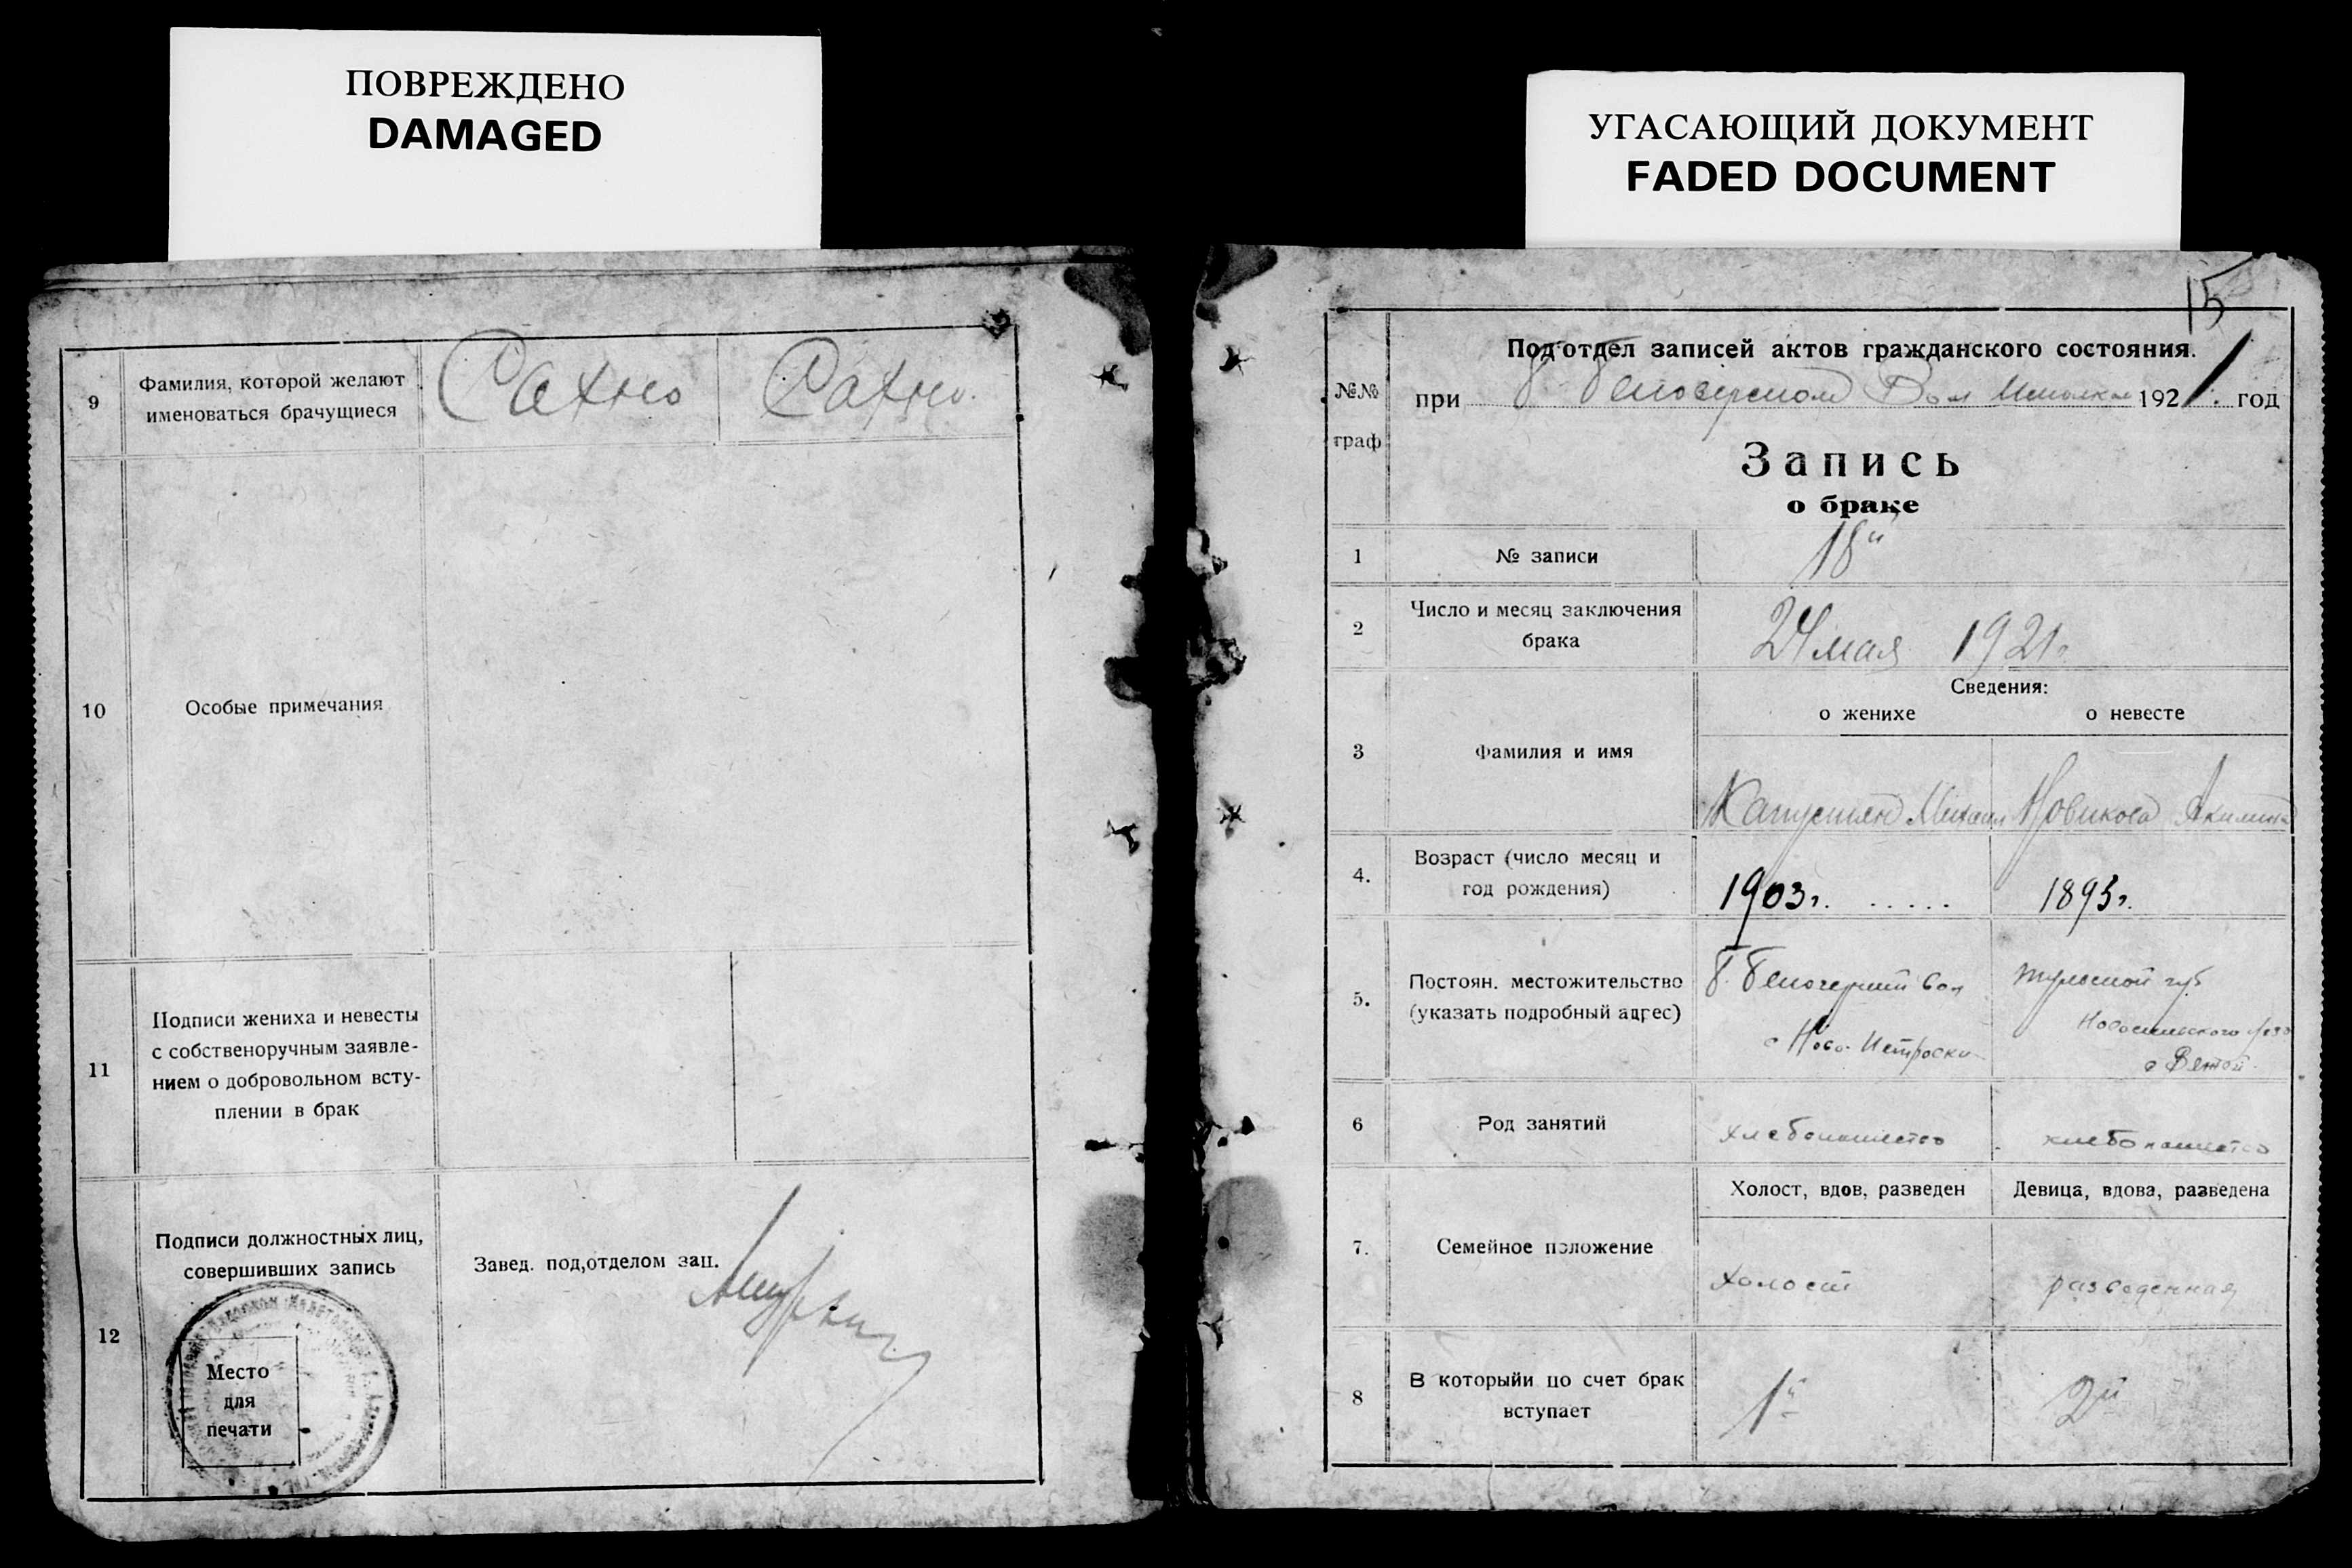 ПОВРЕЖДЕНО
DAMAGED
УГАСАЮЩИЙ ДОКУМЕНТ
FADED DOCUMENT
9
Фамилия, которой желают
именоваться брачущиеся
Сахно
Сахно.
10
Особые примечания
11
Подписи жениха и невесты
с собственоручным заявле-
нием о добровольном всту-
плении в брак
12
Подписи должностных лиц,
совершивших запись
Завед. под,отделом зап.
Место
для
печати
15
№№
граф
Под'отдел записей актов гражданского состояния.
при Вол 1921 год
Запись
о браке
1
№ записи
18й
2
Число и месяц заключения
брака
24 мая 1921г.
Сведения:
о женихе
о невесте
3
Фамилия и имя
Капустян Михаил
Новикова Акилина
4.
Возраст (число месяц и
год рождения)
1903г. . . . . .
1893г.
5.
Постоян. местожительство
(указать подробный адрес)
вол
с Ново-
Тульской губ
Новосильского
с
6
Род занятий
хлебопашество
хлебопашество
7.
Семейное положение
Холост, вдов, разведен
Девица, вдова, разведена
холост
разведенная
8
В которыйи по счет брак
вступает
1й
2й